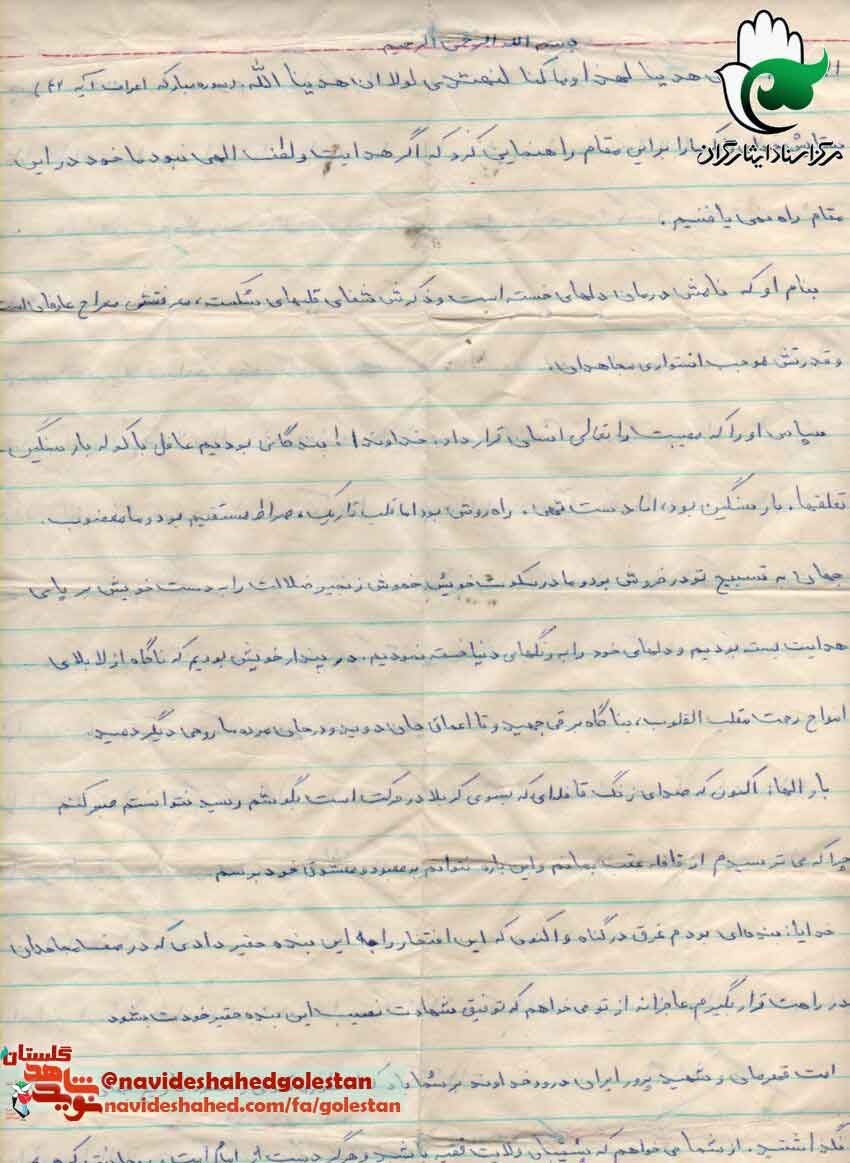 بسم الله الرحمن الرحیم
هدینا لهذا و ما کنا لنهتدی لولا ان هدینا الله. (سوره مبارکه اعراف آیه ۴۲)
مرکز اسناد ایثارگران
ما را براین مقام راهنمایی کرد که اگر هدایت و لطف الهی نبود ما خود در این
مقام راه نمی یافتیم.
بنام او که نامش درمان دلهای خسته است و ذکرش شفای قلبهای شکسته، معرفتش معراج عارفان است
و قدرتش موجب استواری مجاهدان.
سپاس او را که مصیبت را تعالی انسان قرار داد. خداوندا! بندگانی بودیم غافل با کوله بار سنگین
تعلقها. بار سنگین بود، اما دست تهی. راه روشن بود اما قلب تاریک، صراط مستقیم بود و ما مغضوب.
جهان به تسبیح تو در خروش بود و ما در سکوت خویش خموش زنجیر ضلالت را به دست خویش بر پای
هدایت بسته بودیم و دلهای خود را به رنگهای دنیا خسته نمودیم. در پندار خویش بودیم که ناگاه از لابلای
امواج رحمت مقلب القلوب، بناگاه برقی جهید و تا اعماق جان دوید و در جان مرده ما روحی دیگر دمید.
بار الها: اکنون که صدای زنگ قافله‌ای که بسوی کربلا در حرکت است بگوشم رسید نتوانستم صبر کنم
چرا که می ترسیدم از قافله عقب بمانم و این بار نتوانم به معبود و معشوق خود برسم
خدایا: بنده‌ای بودم غرق در گناه و اکنون که این افتخار را به این بنده حقیر دادی که در صف مجاهدان
در راهت قرار بگیرم عاجزانه از تو می خواهم که توفیق شهادت نصیب این بنده حقیر خودت بشود
امت قهرمان و شهید پرور ایران درود خداوند بر شما باد که
گذاشتید. از شما می خواهم که پشتیبان ولایت فقیه باشید و هرگز دست از امام امت
گلستان
نوید شاهد
@navideshahedgolestan
navideshahed.com/fa/golestan